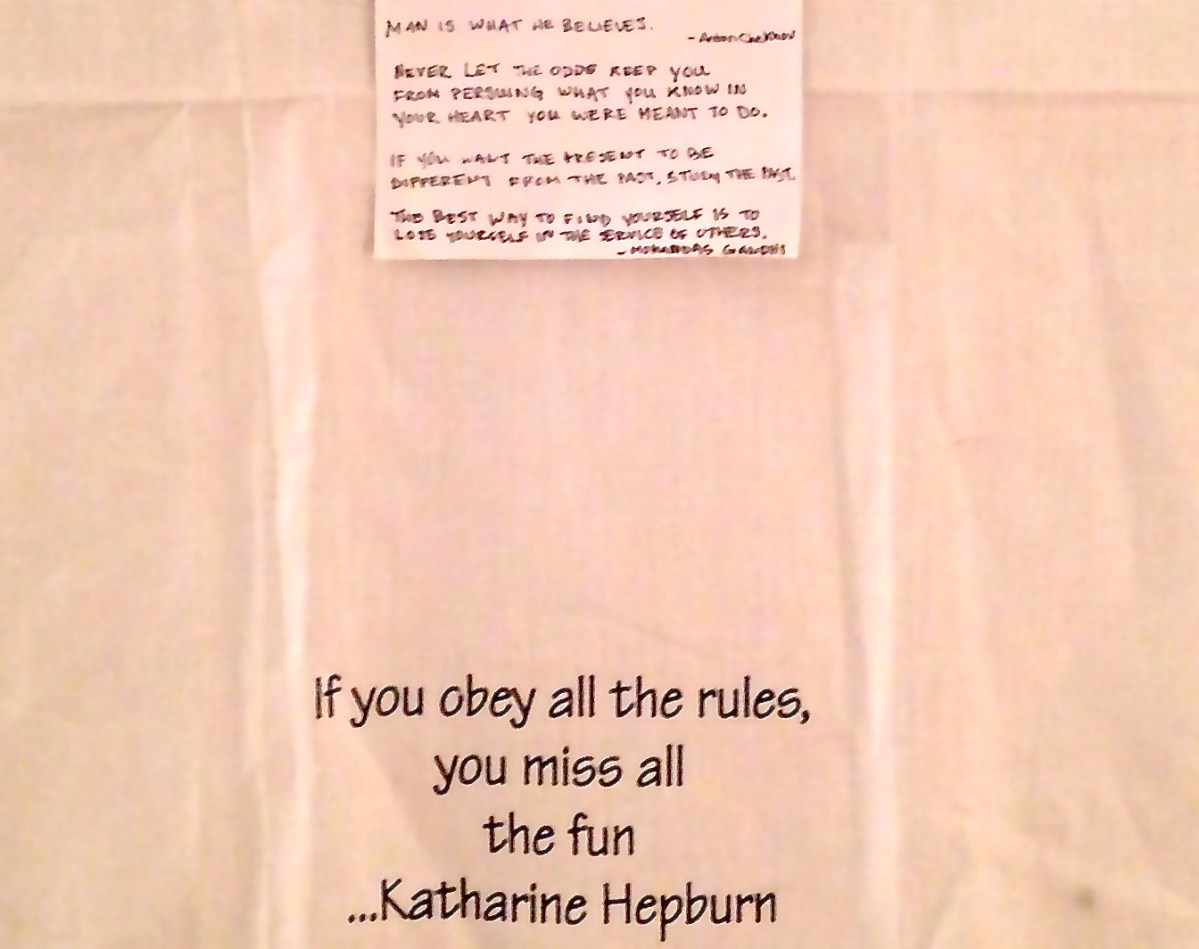 MAN IS WHAT HE BELIEVES.
- Anton Chekhov
NEVER LET THE ODDS KEEP YOU
FROM PERSUING WHAT YOU KNOW IN
YOUR HEART YOU WERE MEANT TO DO.
IF YOU WANT THE PRESENT TO BE
DIFFERENT FROM THE PAST, STUDY THE PAST.
THE BEST WAY TO FIND YOURSELF IS TO
LOSE YOURSELF IN THE SERVICE OF OTHERS.
- MOHANDAS GANDHI
If you obey all the rules,
you miss all
the fun
...Katharine Hepburn